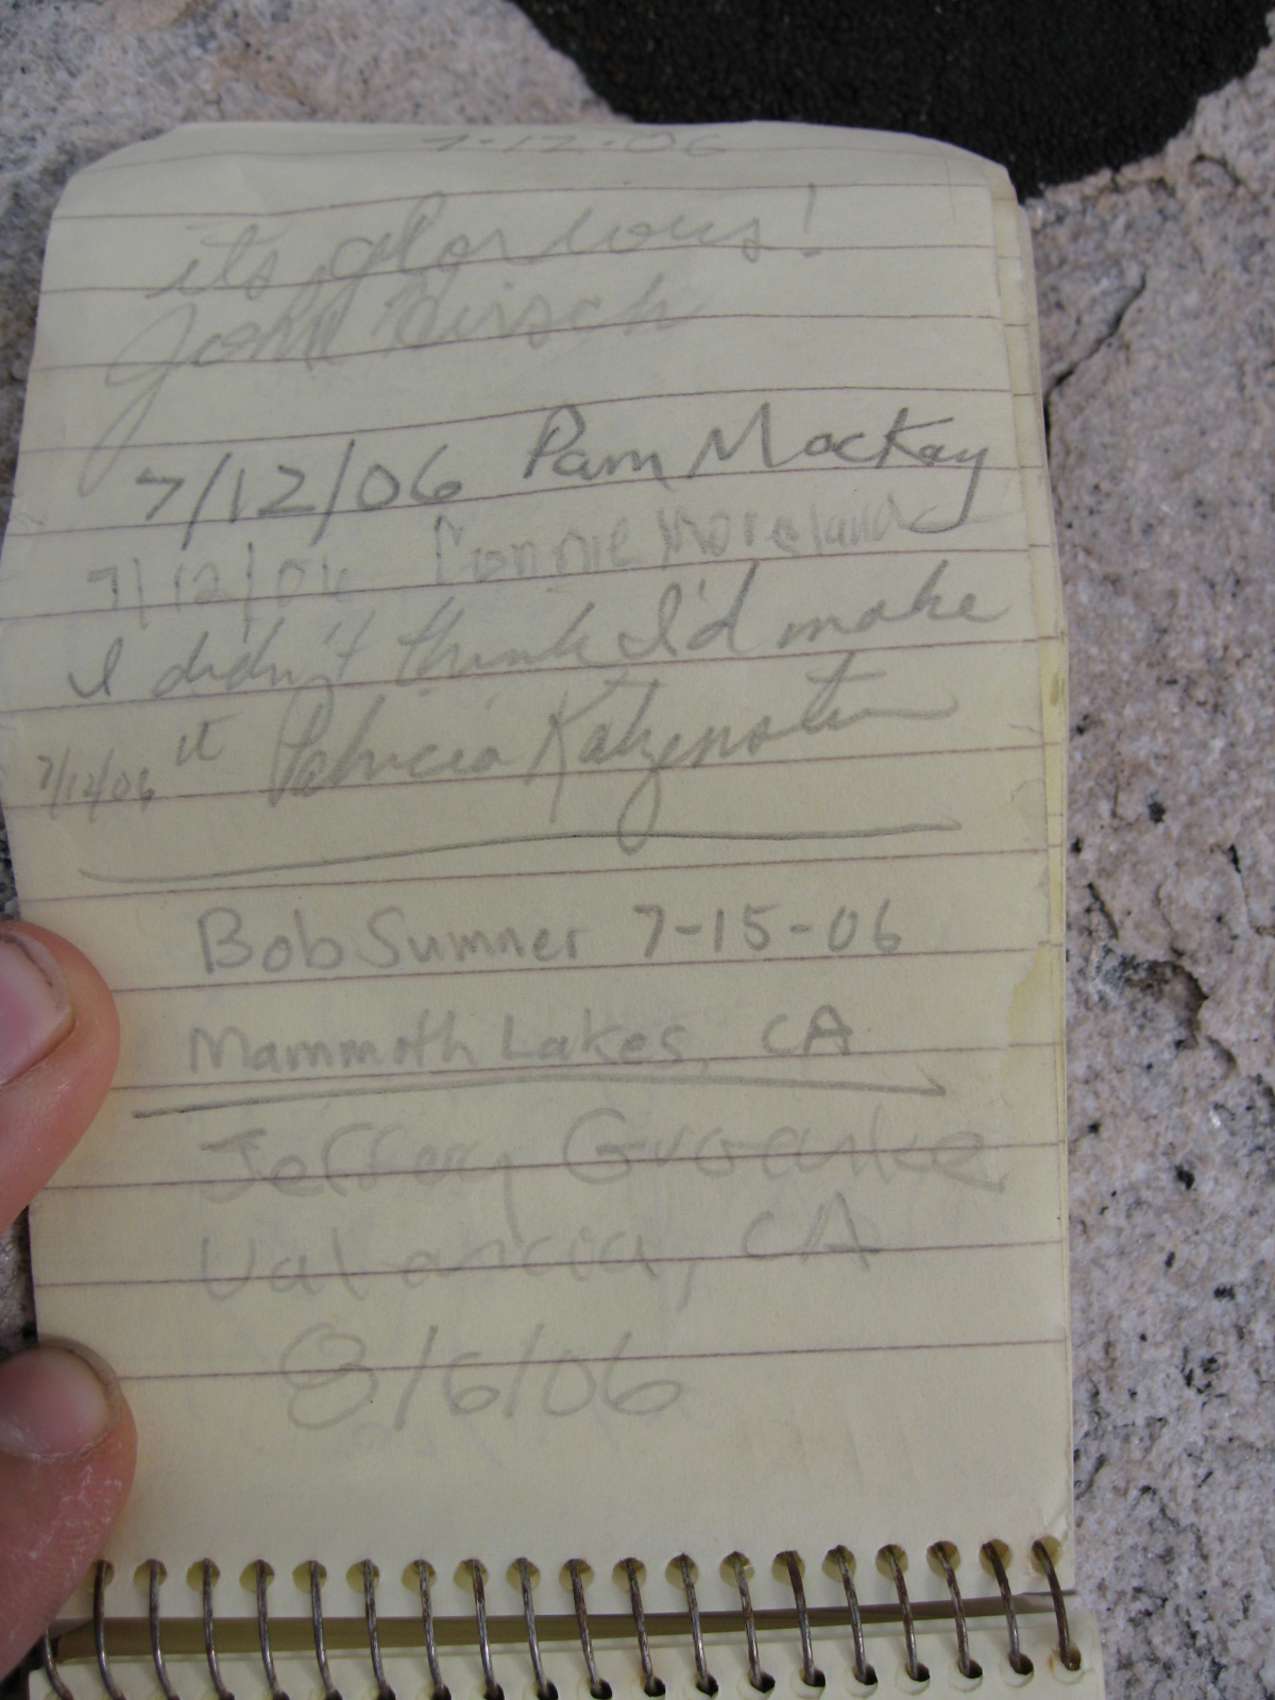 7-12-06
its glorious!
John Hirsch
7/12/06 Pam Mackay
7/12/06 Connie Moreland
I didn't think I'd make
7/12/06 it Patricia Katzenstein
Bob Sumner 7-15-06
Mammoth Lakes, CA
Jeffrey Groanke
Valancia, CA
8/6/06